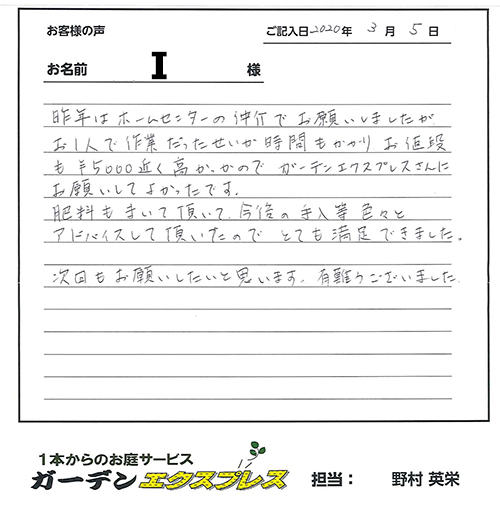 お客様の声
ご記入日2020年 3月 5日
お名前 I 様
昨年はホームセンターの仲介でお願いしましたが
お1人で作業だったせいか時間もかかりお値段
も¥5000近く高かったので ガーデンエクスプレスさんに
お願いしてよかったです。
肥料もまいて頂いて、今後の手入等色々と
アドバイスして頂いたので とても満足できました。
次回もお願いしたいと思います。有難うございました
1本からのお庭サービス
ガーデンエクスプレス 担当： 野村 英栄